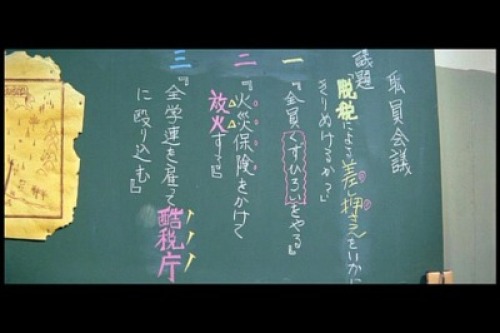 職員会議
議題「脱税による差押えをいかに
きりぬけるか?」
一『全員くずひろいをやる』
二『火災保険をかけて
放火する』
三『全学連を雇って酷税庁
に殴り込む』